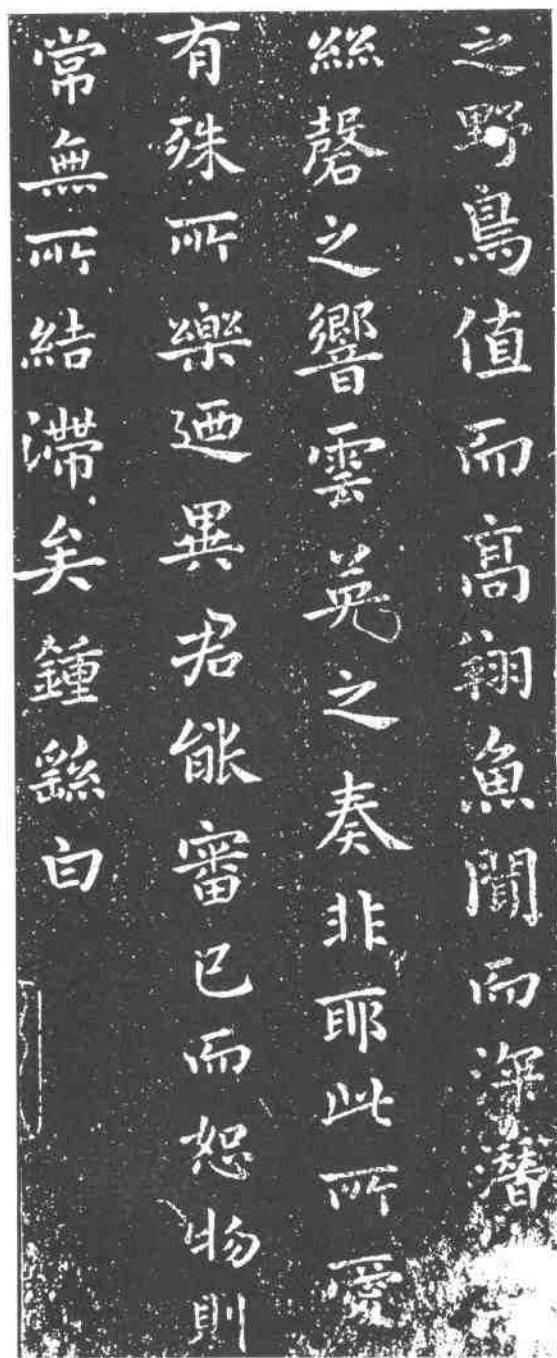 之野鳥值而高翔魚聞而深潛
絲磬之響雲英之奏非耶此所愛
有殊所樂迺異君能審己而恕物則
常無所結滯矣鍾繇白